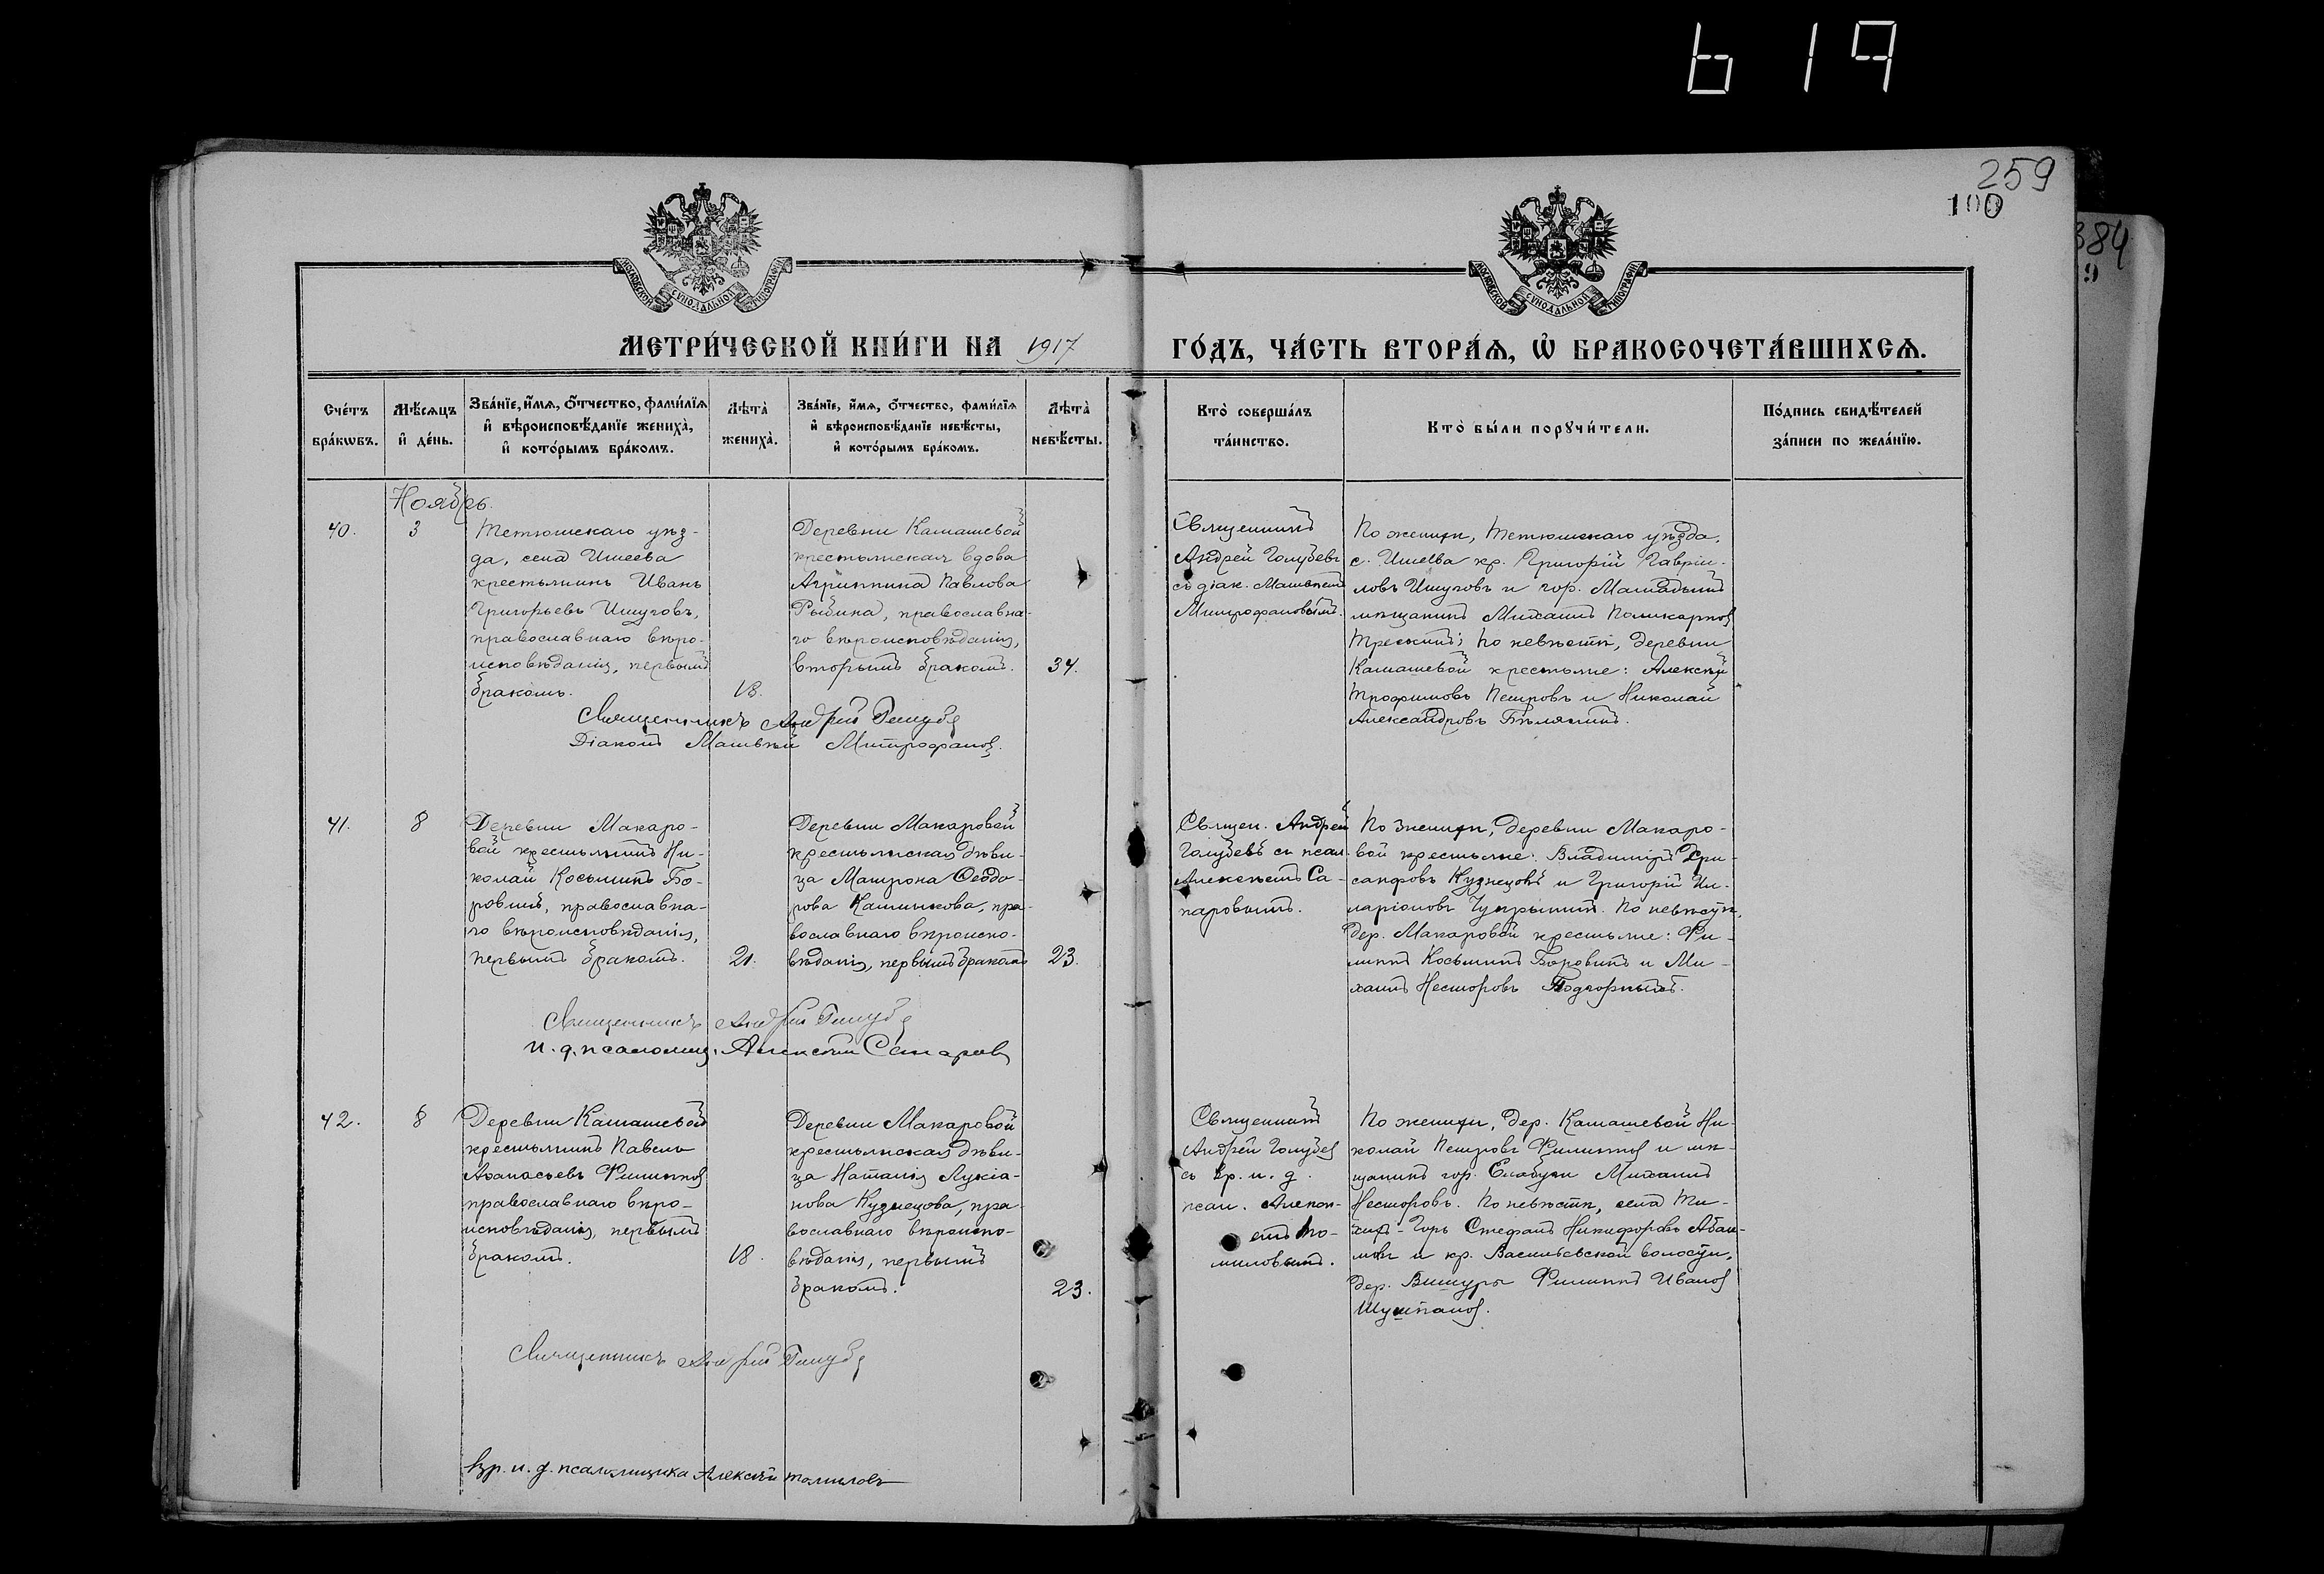 619
259
100
384
9
МОСКОВСКОЙ СУНОДАЛЬНОЙ ТИПОГРАФІИ
МОСКОВСКОЙ СУНОДАЛЬНОЙ ТИПОГРАФІИ
МЕТРИ́ЧЕСКОЙ КНИ́ГИ НА 1917 ГО́ДЪ, ЧА́СТЬ ВТОРА́Я, Ѡ҆ БРАКОСОЧЕТА́ВШИХСЯ.
Сче́тъ бра́кѡвъ.
Мѣ́сяцъ и҆ де́нь.
Зва́нїе, и҆́мя, ѻ҆́тчество, фами́лїя
и҆ вѣроисповѣ́данїе жениха̀,
и҆ кото́рымъ бра́комъ.
Лѣта̀ жениха̀.
Зва́нїе, и҆́мя, ѻ҆́тчество, фами́лїя
и҆ вѣроисповѣ́данїе невѣ́сты,
и҆ кото́рымъ бра́комъ.
Лѣта̀ невѣ́сты.
Кто̀ соверша́лъ
та́инство.
Кто̀ бы́ли порꙋчи́тели.
По́дпись свидѣ́телей
за́писи по жела́нїю.
Ноябрь.
40.
3
Тетюшскаго уѣз-
да, села Ишеева
крестьянинъ Иванъ
Григорьевъ Ишуговъ,
православнаго вѣро-
исповѣданія, первымъ
бракомъ.
18.
Деревни Камашевой
крестьянская вдова
Агриппина Павлова
Рыбина, православна-
го вѣроисповѣданія,
вторымъ бракомъ.
34.
Священникъ
Андрей Голубевъ
съ діак. Матвѣемъ
Митрофановымъ.
По женихѣ, Тетюшскаго уѣзда,
с. Ишеева кр. Григорій Гаврiи-
ловъ Ишуговъ и гор. Мамадышъ
мѣщанинъ Михаилъ Поликарповъ
по невѣстѣ, деревни
Камашевой крестьяне: Алексѣй
Трофимовъ Петровъ и Николай
Александровъ Бѣлянинъ.
Священникъ Андрей Голубевъ
Діаконъ Матвѣй Митрофановъ.
41.
8
Деревни Макаро-
вой крестьянинъ Ни-
колай Косьминъ Бо-
ровинъ, православна-
го вѣроисповѣданія,
первымъ бракомъ.
21.
Деревни Макаровой
крестьянская дѣви-
ца Матрона Ѳеодо-
рова Калинкова, пра-
вославнаго вѣроиспо-
вѣданія, первымъ бракомъ
23.
Священ. Андрей
Голубевъ съ псал.
Алексѣемъ Са-
паровымъ.
По женихѣ, деревни Макаро-
вой крестьяне: Владиміръ Хри-
санфовъ Кузнецовъ и Григорій Ил-
ларіоновъ По невѣстѣ,
дер. Макаровой крестьяне: Фи-
липпъ Косьминъ Боровинъ и Ми-
хаилъ Несторовъ Подгорныхъ.
Священникъ Андрей Голубевъ
и. д. псаломщ. Алексѣй Сапаровъ
42.
8
Деревни Камашевой
крестьянинъ Павелъ
Аѳанасьевъ Филипповъ
православнаго вѣро-
исповѣданія, первымъ
бракомъ.
18.
Деревни Макаровой
крестьянская дѣви-
ца Наталія Лукіа-
нова Кузнецова, пра-
вославнаго вѣроиспо-
вѣданія, первымъ
бракомъ.
23.
Священникъ
Андрей Голубевъ
съ вр. и. д.
псал. Алексѣ-
емъ То-
миловымъ.
По женихѣ, дер. Камашевой Ни-
колай Петровъ Филипповъ и мѣ-
щанинъ гор. Елабуги Михаилъ
Несторовъ. По невѣстѣ, села Ти-
хихъ-Горъ Стефанъ Никифоровъ
и кр. Васильевской волости,
дер. Филиппъ Ивановъ
Шушпановъ.
Священникъ Андрей Голубевъ
Вр. и. д. псаломщика Алексѣй Томиловъ